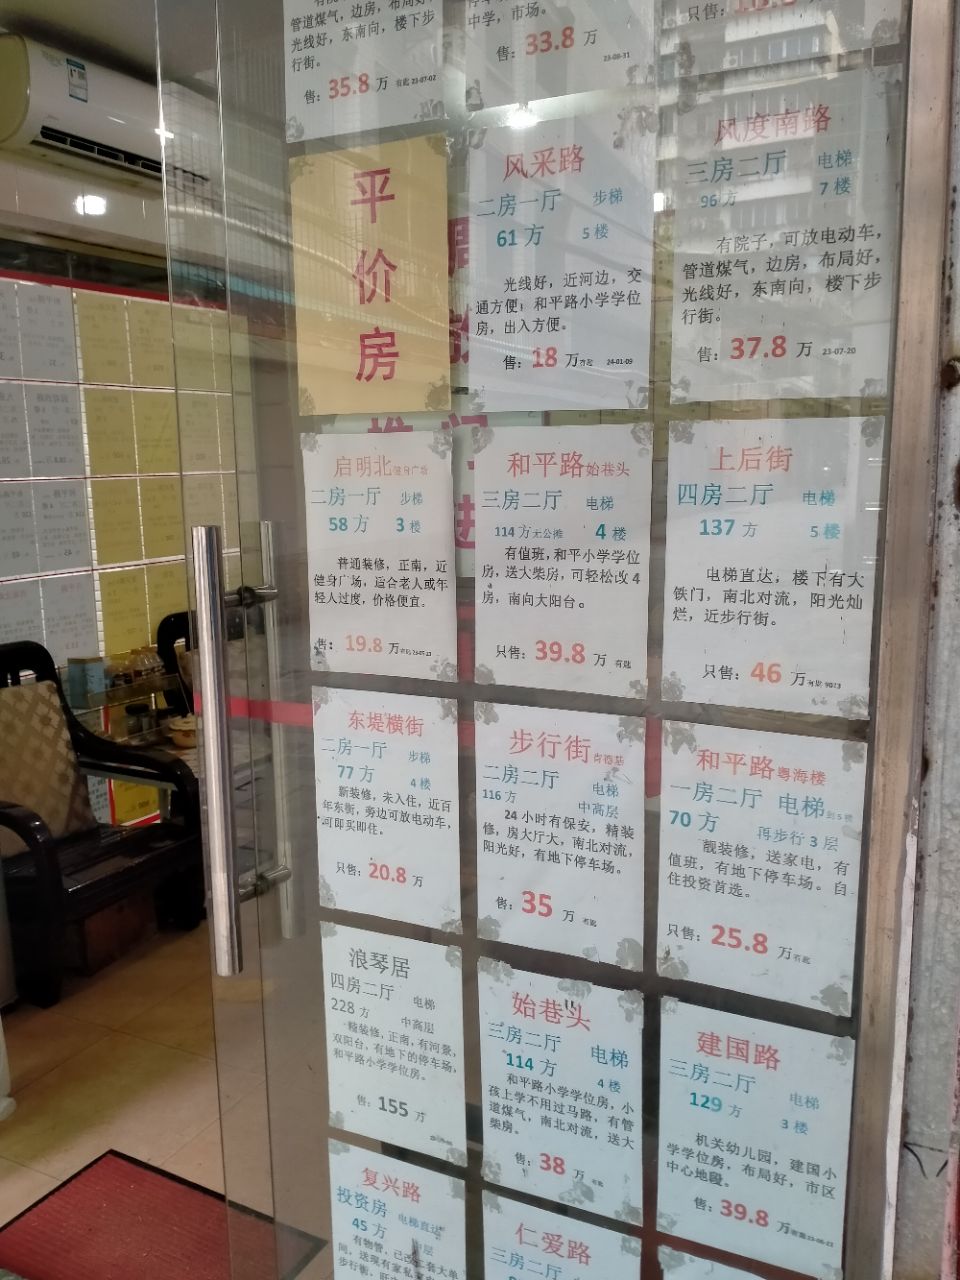 管道煤气，边房，布局好，
光线好，东南向，楼下步
行街。
售：35.8 万 有匙 23-07-02
中学，市场。
售：33.8 万
23-08-31
只售：
平
价
房
风采路
二房一厅 步梯
61 方 5 楼
光线好，近河边，交
通方便，和平路小学学位
房，出入方便。
售：18 万有匙 24-01-09
风度南路
三房二厅 电梯
96 方 7 楼
有院子，可放电动车，
管道煤气，边房，布局好，
光线好，东南向，楼下步
行街。
售：37.8 万 23-07-20
启明北健身广场
二房一厅 步梯
58 方 3 楼
普通装修，正南，近
健身广场，适合老人或年
轻人过度，价格便宜。
售：19.8 万有匙
和平路始巷头
三房二厅 电梯
114 方无公摊 4 楼
有值班，和平小学学位
房，送大柴房，可轻松改 4
房，南向大阳台。
只售：39.8 万 有匙
上后街
四房二厅 电梯
137 方 5 楼
电梯直达，楼下有大
铁门，南北对流，阳光灿
烂，近步行街。
只售：46 万有匙
东堤横街
二房一厅 步梯
77 方 4 楼
新装修，未入住，近百
年东街，旁边可放电动车，
可即买即住。
只售：20.8 万
步行街肯德基
二房二厅 电梯
116 方 中高层
24 小时有保安，精装
修，房大厅大，南北对流，
阳光好，有地下停车场。
售：35 万 有匙
和平路粤海楼
一房二厅 电梯到 5 楼
70 方 再步行 3 层
靓装修，送家电，有
值班，有地下停车场。自
住投资首选。
只售：25.8 万有匙
浪琴居
四房二厅 电梯
228 方 中高层
精装修，正南，有河景，
双阳台，有地下的停车场，
和平路小学学位房。
售：155 万
始巷头
三房二厅 电梯
114 方 4 楼
和平路小学学位房，小
孩上学不用过马路，有管
道煤气，南北对流，送大
柴房。
售：38 万 有匙
建国路
三房二厅 电梯
129 方 3 楼
机关幼儿园，建国小
学学位房，布局好，市区
中心地段。
售：39.8 万有匙 23-06-22
复兴路
投资房 电梯直达
45 方 中层
有物管，已改二套大单
间，送现有家私
步行街，旺
仁爱路
三房二厅